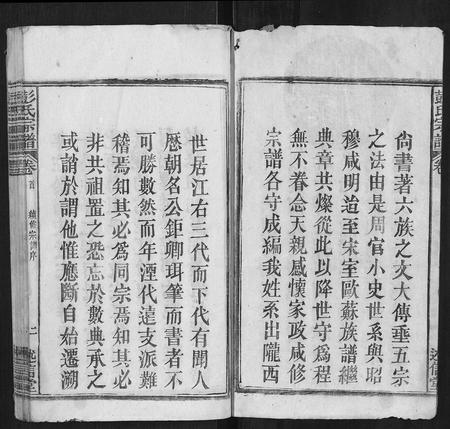 尙書著六族之文大傳垂五宗
之法由是周官小史世系與昭
穆咸明迨至宋室歐蘇族譜繼
典章共燦從此以降世守爲程
無不眷念天親感懷家政咸修
宗譜各守成編我姓系出隴西
世居江右三代而下代有聞人
歷朝名公鉅卿珥筆而書者不
可勝數然而年湮代遠支派難
稽焉知其必爲同宗焉知其必
非共祖置之恐忘於數典承之
或誚於謂他惟應斷自始遷溯
彭氏宗譜
卷
述信堂
彭氏宗譜
卷首
續修宗譜序
二
述信堂